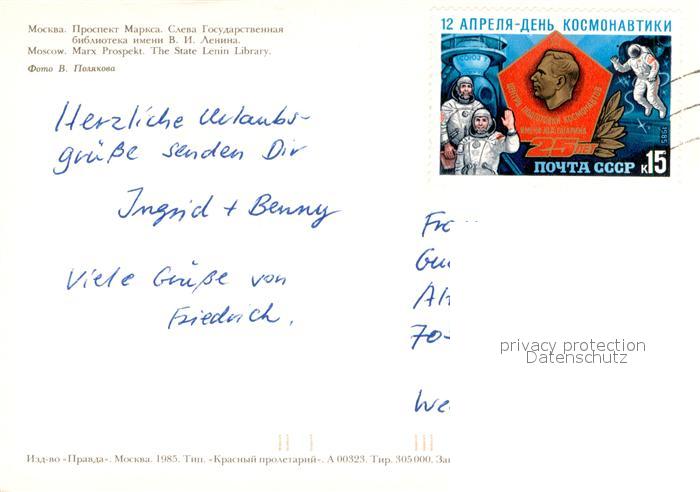 Москва. Проспект Маркса. Слева Государственная
библиотека имени В. И. Ленина.
Moscow. Marx Prospekt. The State Lenin Library.
Фото В. Полякова
12 АПРЕЛЯ-ДЕНЬ КОСМОНАВТИКИ
СОЮЗ
ЦЕНТР ПОДГОТОВКИ КОСМОНАВТОВ
ИМЕНИ Ю.А.ГАГАРИНА
25 ЛЕТ
1985
ПОЧТА СССР к15
Herzliche Urlaubs-
grüße senden Dir
Ingrid + Benny
Viele Grüße von
Friedrich.
Fra
Gu
Al
70-
We
privacy protection
Datenschutz
Изд-во «Правда». Москва. 1985. Тип. «Красный пролетарий». А 00323. Тир. 305000. За